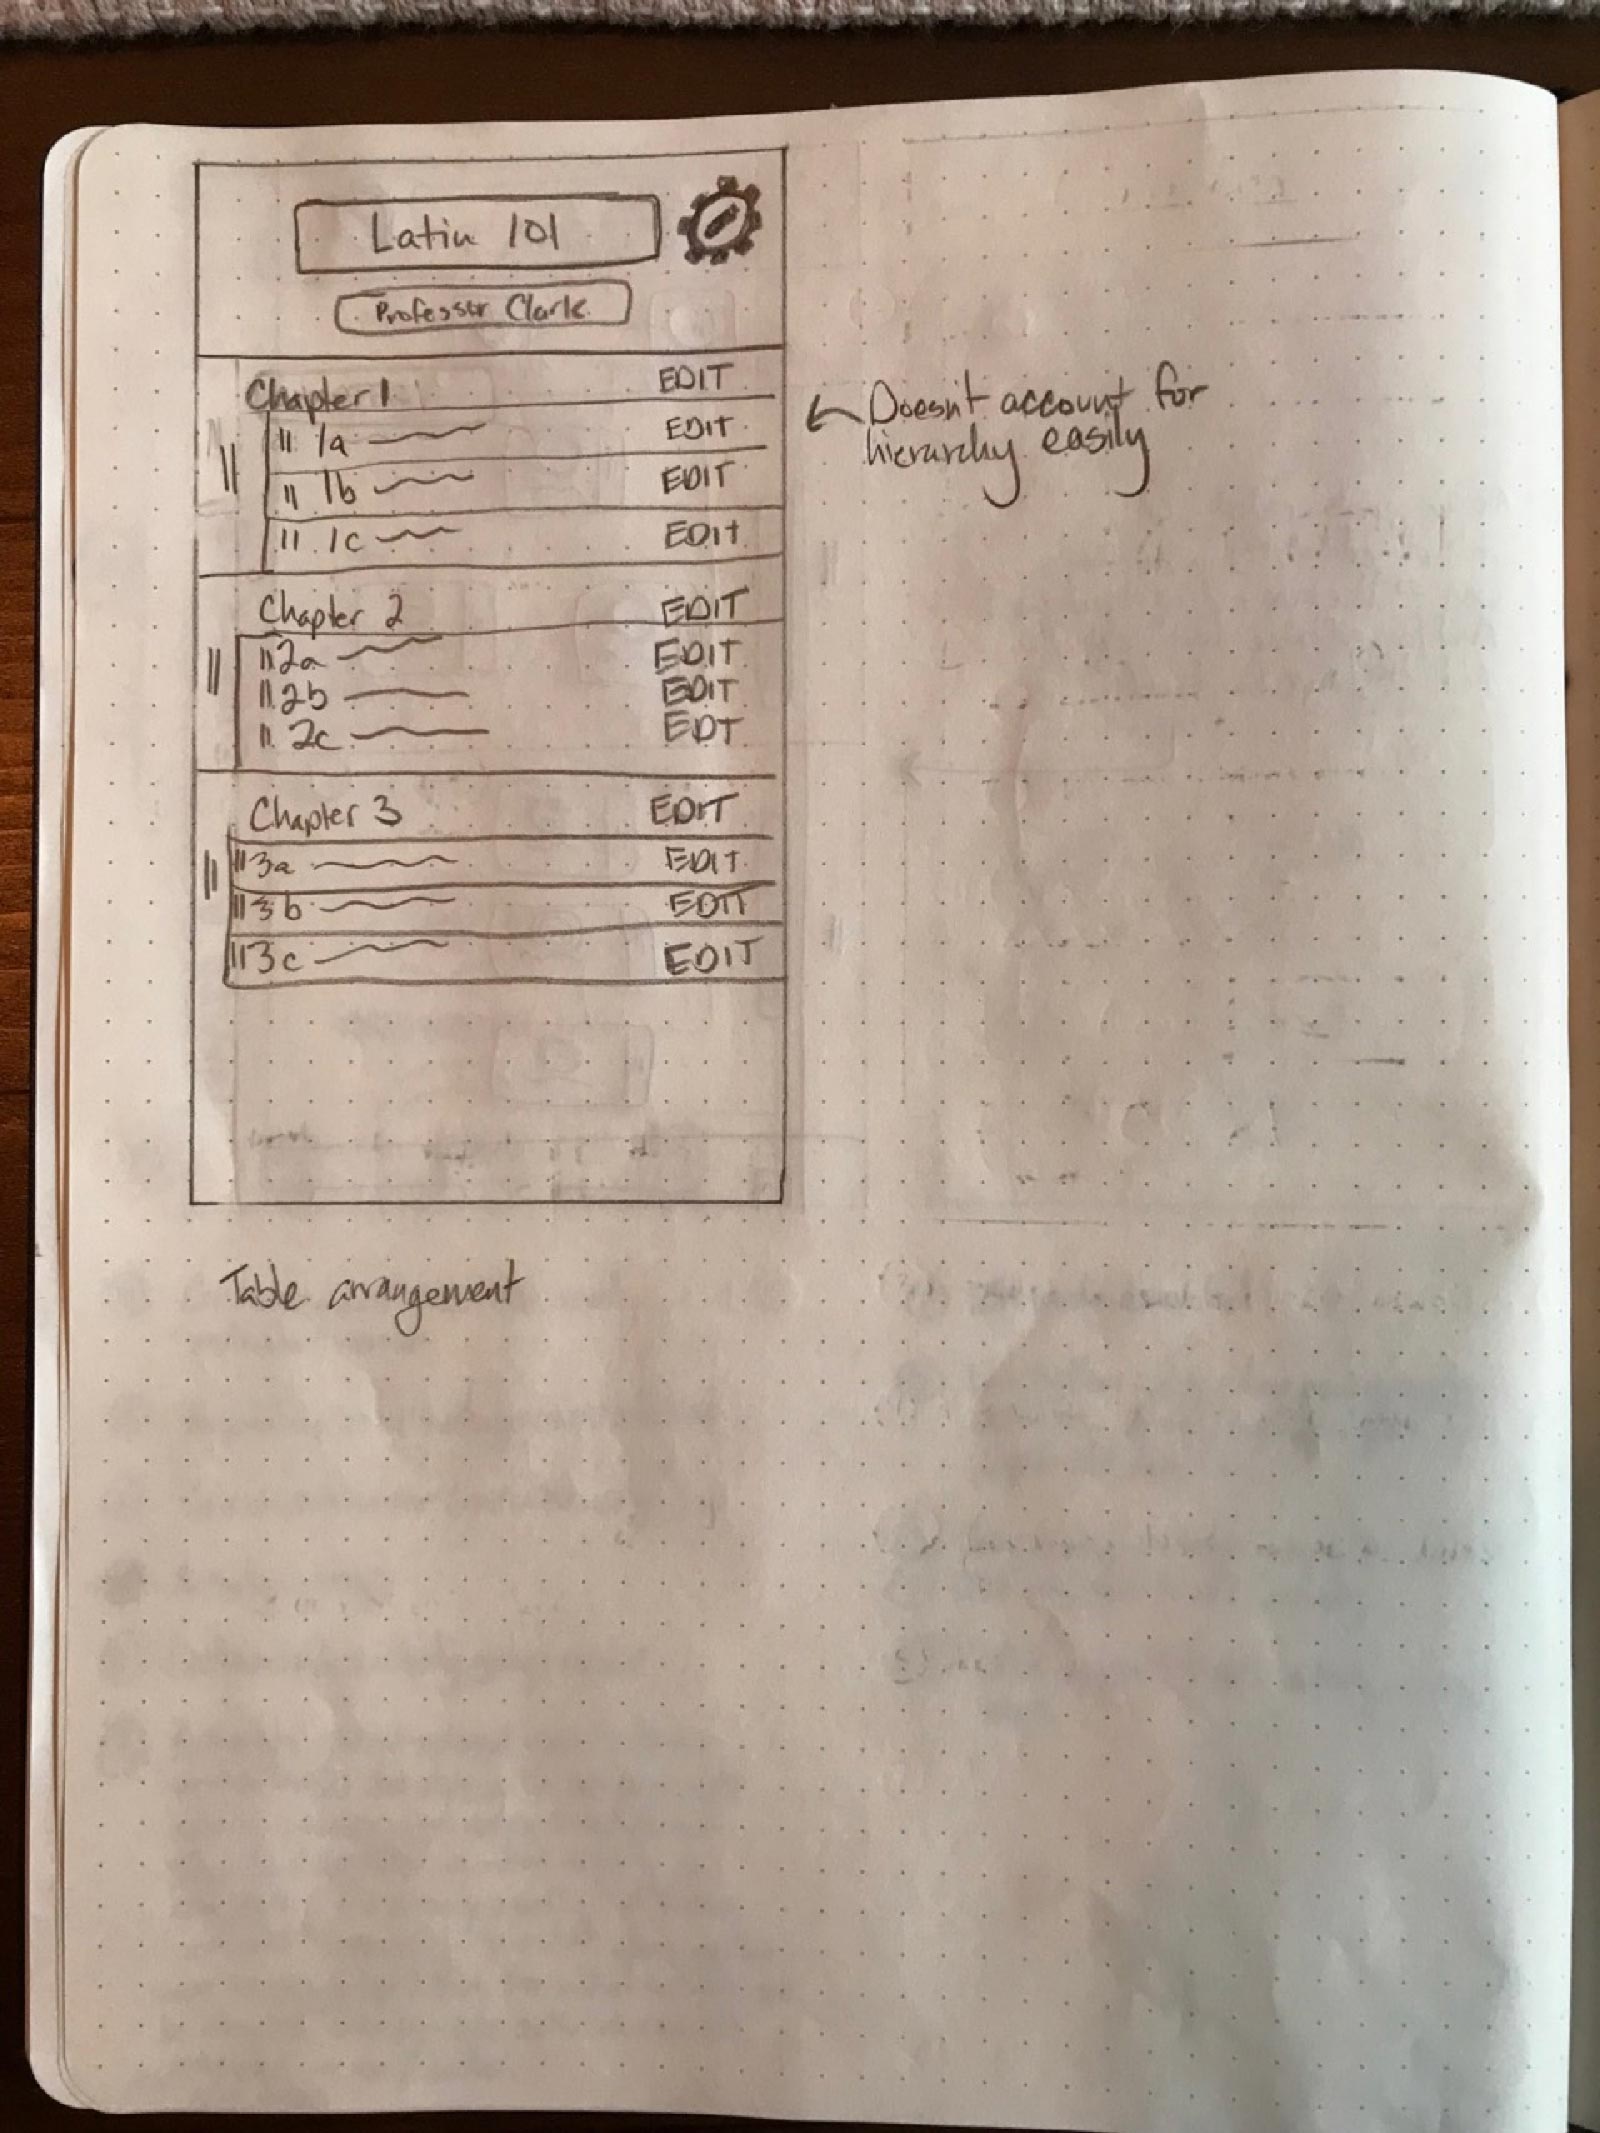 Latin 101
Professor Clark
Chapter 1 EDIT
1a EDIT
1b EDIT
1c EDIT
Chapter 2 EDIT
2a EDIT
2b EDIT
2c EDT
Chapter 3 EDIT
3a EDIT
3b EDIT
3c EDIT
Doesn't account for
hierarchy easily
Table arrangement